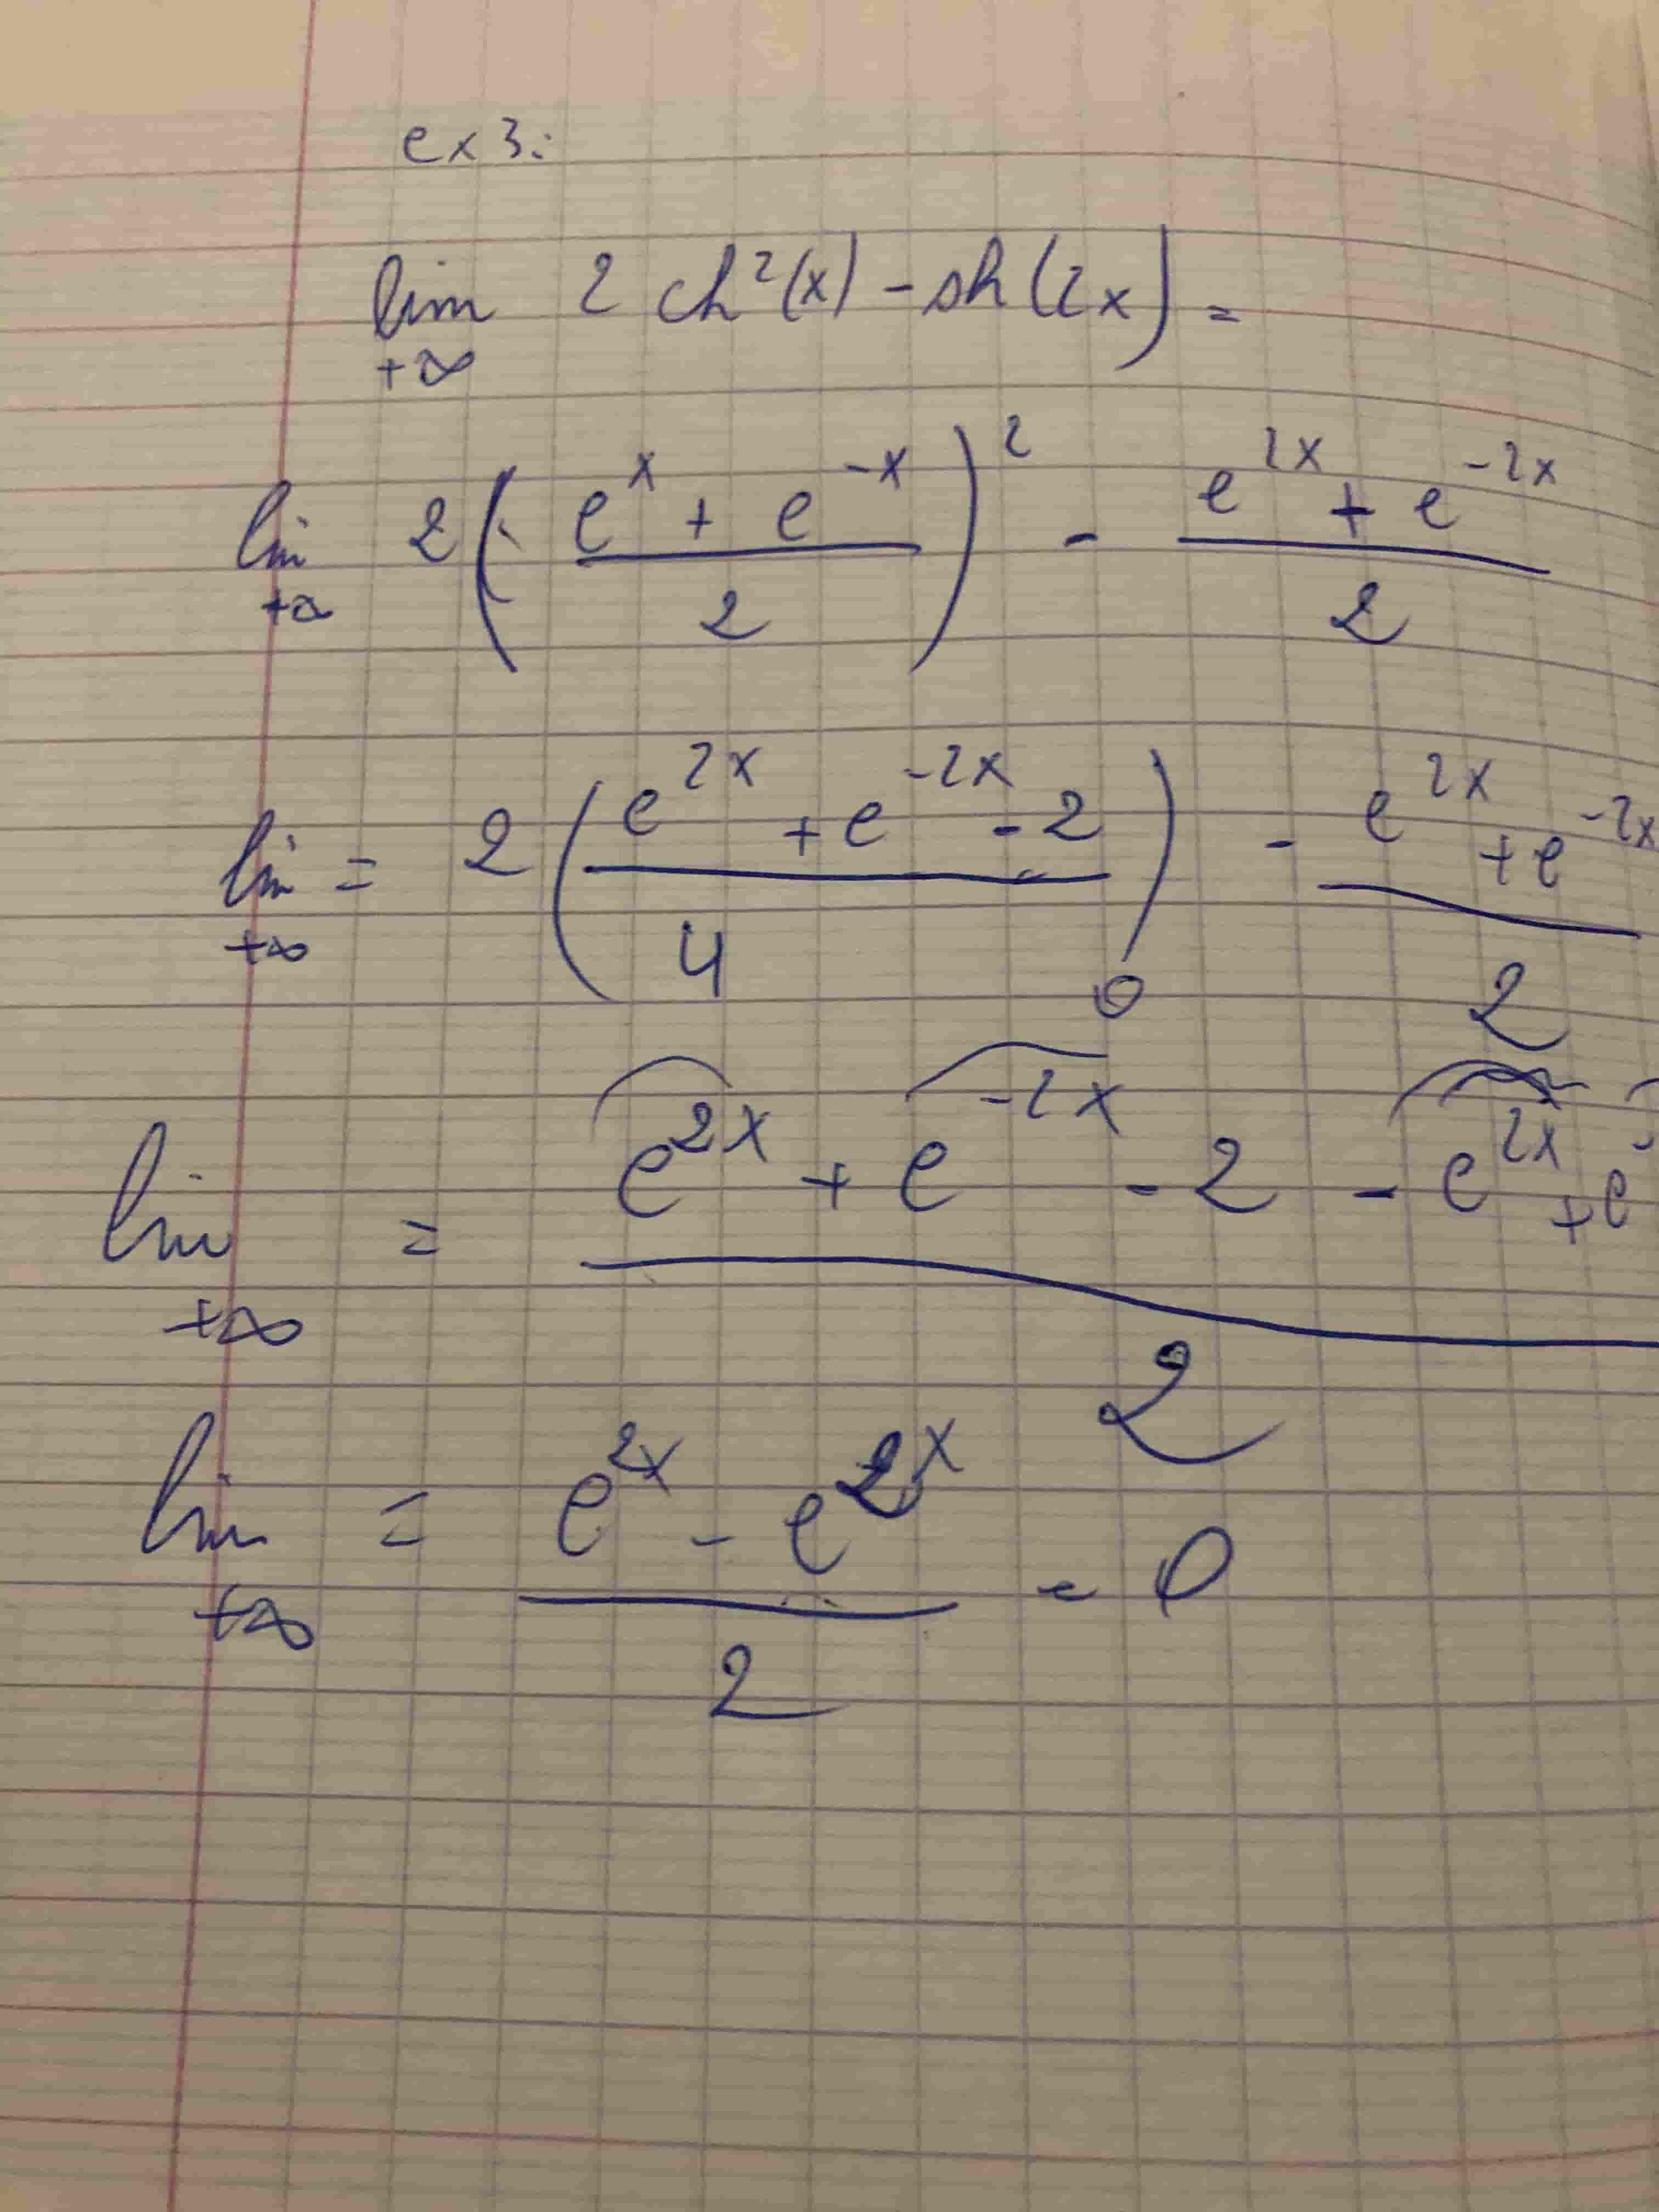 ex 3:
lim 2 ch²(x) - sh(2x) =
+∞
lim 2( (e^x + e^-x)/2 )² - (e^2x + e^-2x)/2
+∞
lim = 2( (e^2x + e^-2x - 2)/4 ) - (e^2x + e^-2x)/2
+∞
0
lim = (e^2x + e^-2x - 2 - e^2x + e^-)/2
+∞
lim = (e^2x - e^2x)/2 = 0
+∞